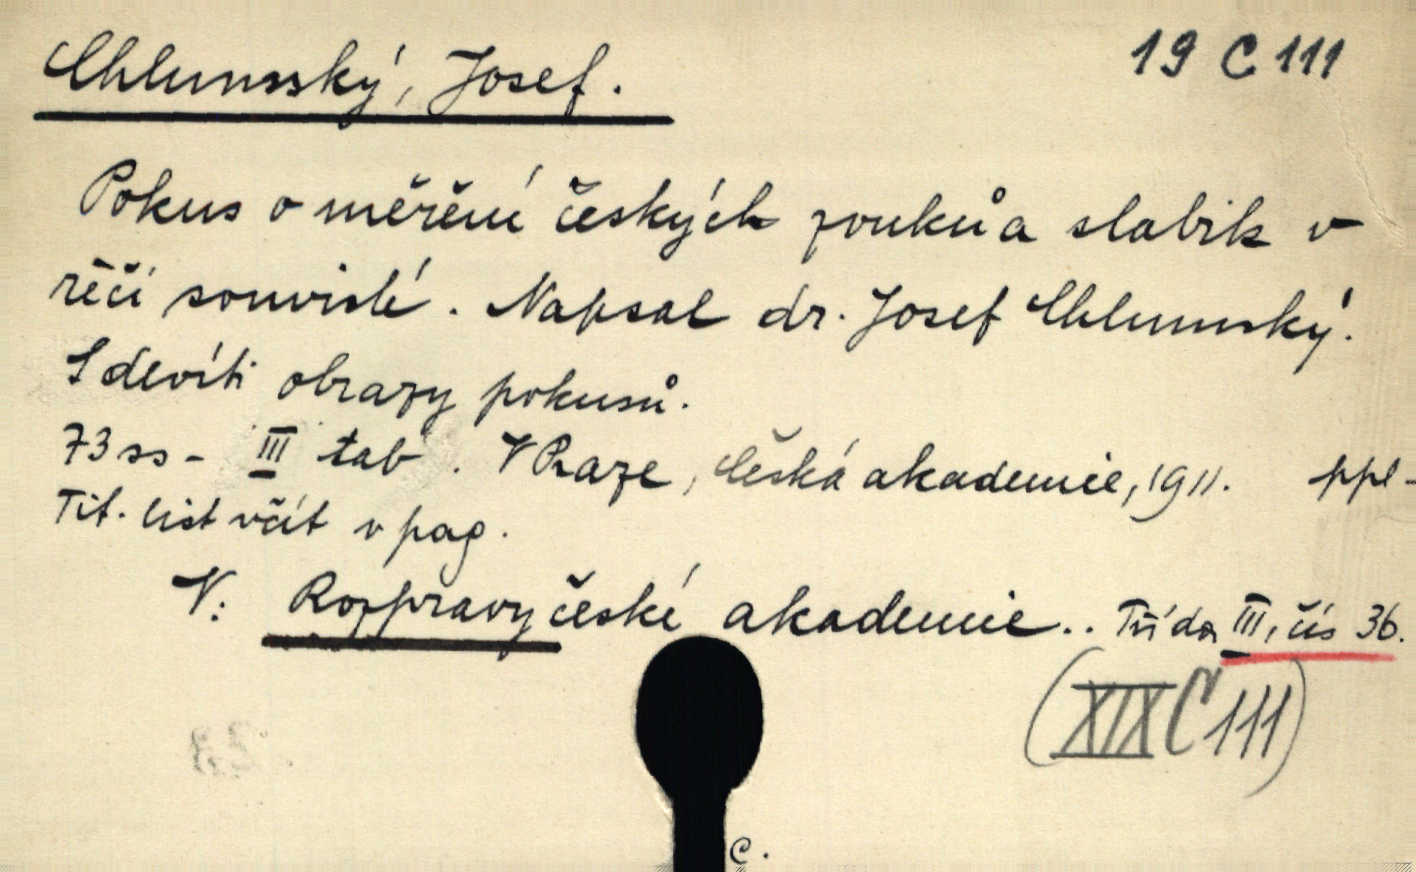 Chlumský, Josef.
19 C 111
Pokus o měření českých zvuků a slabik v
řeči souvislé. Napsal dr. Josef Chlumský.
S devíti obrazy pokusů.
73 ss - III tab. V Praze, Česká akademie, 1911. ppl-
Tit. list včít v pag.
V: Rozpravy české akademie.. Třída III, čís 36.
(XIX C 111)
C.